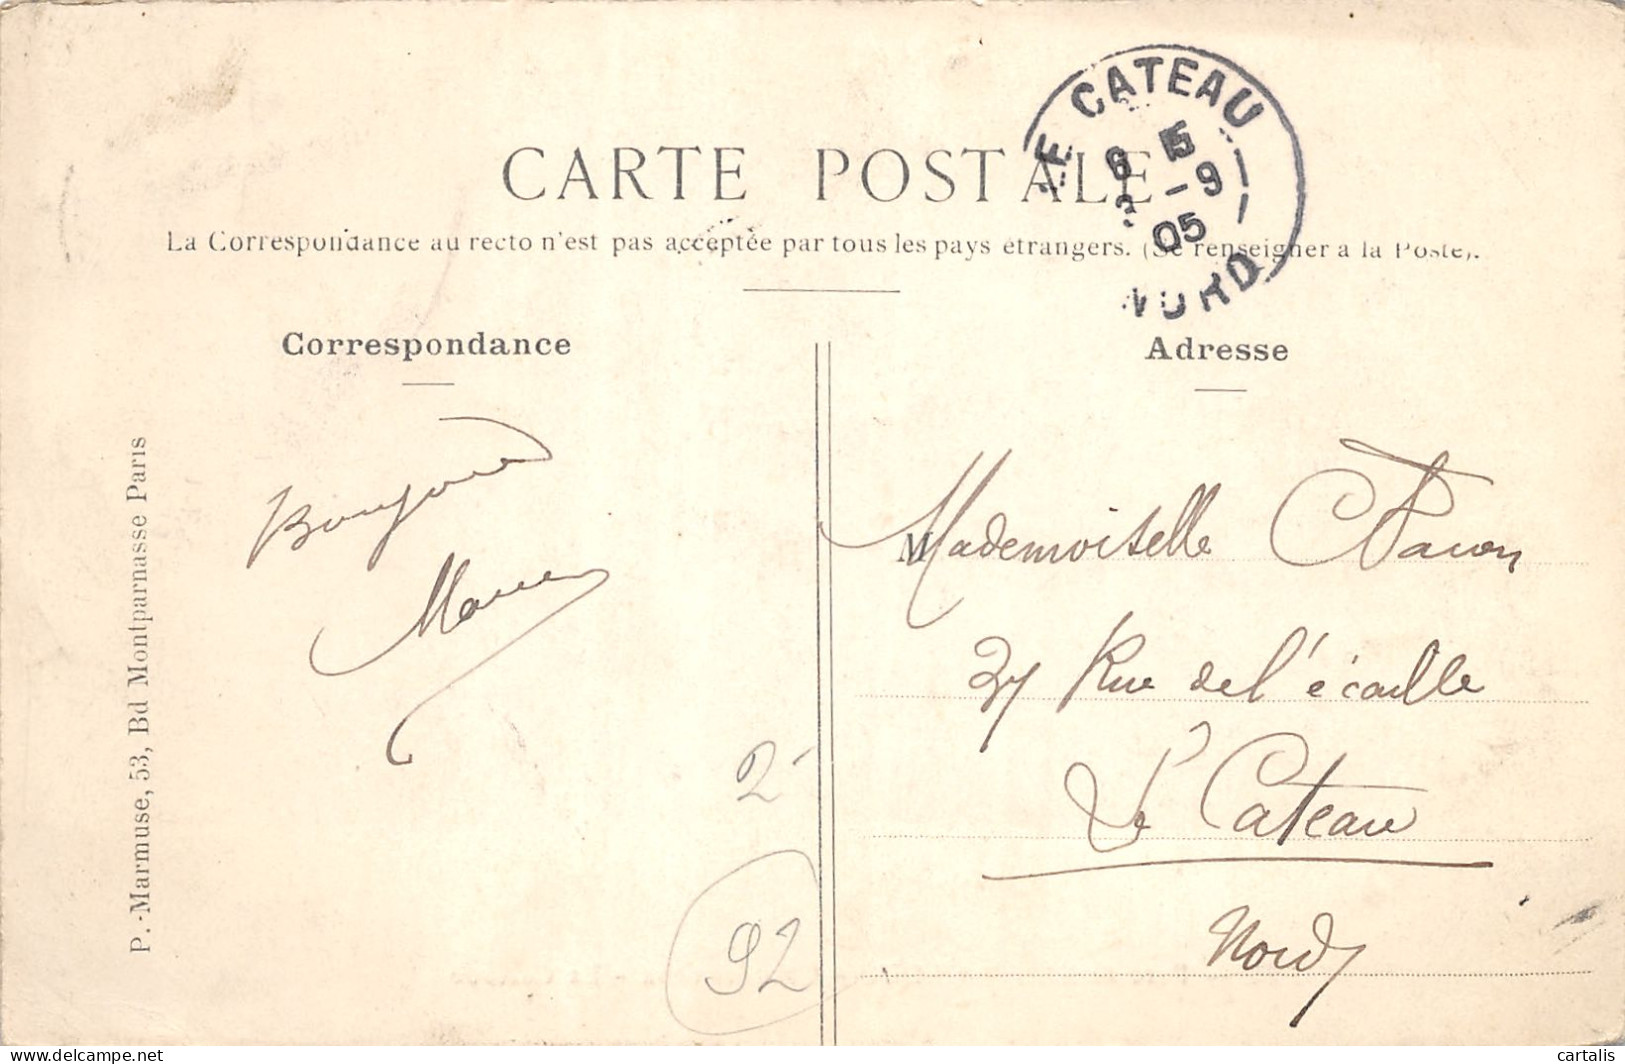 CARTE POSTALE
La Correspondance au recto n'est pas acceptée par tous les pays étrangers. (Se renseigner à la Poste).
LE CATEAU
6 15
3 -9
05
NORD
Correspondance
Bonjour
P.-Marmuse, 53, Bd Montparnasse Paris
2-
92
Adresse
M
Mademoiselle
27 Rue de l'écaille
Le Cateau
Nord
delcampe.net
cartalis